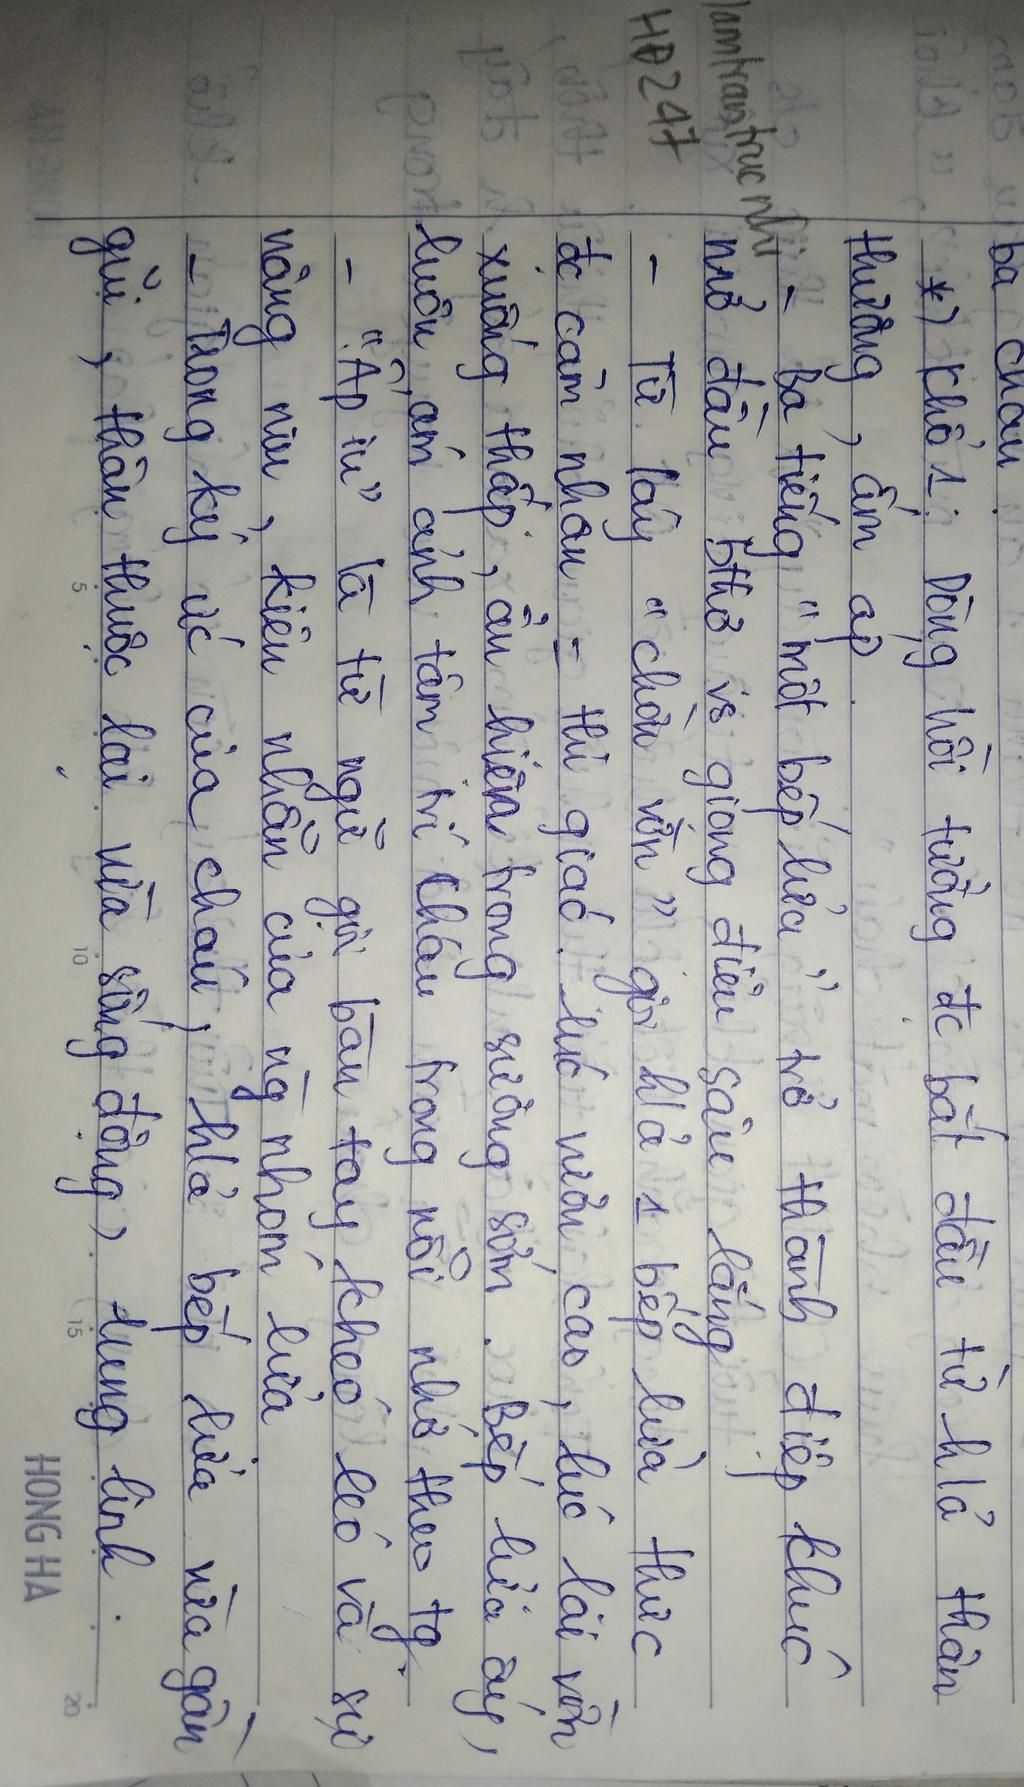 ba cháu
*) Khổ 1: Dòng hồi tưởng đc bắt đầu từ hả thân
thương, ấm áp.
- Ba tiếng "một bếp lửa" trở thành điệp khúc
mở đầu bthơ vs giọng điệu sâu lắng
- Từ láy "chờn vờn" gợi hả 1 bếp lửa thực
đc cảm nhận = thị giác. lúc vươn cao, lúc lải vờn
xuống thấp, ẩn hiện trong sương sớm. Bếp lửa ấy,
luôn ám ảnh tâm trí cháu trong nỗi nhớ theo tg.
- "Ấp iu" là từ ngữ gợi bàn tay khéo léo và sự
nâng niu, kiên nhẫn của ng nhóm lửa
- Trong ký ức của cháu, hả bếp lửa vừa gần
gũi, thân thuộc lại vừa sống động, lung linh.
lamtrantrucnhi
HĐ247
5
10
15
20
HONG HA